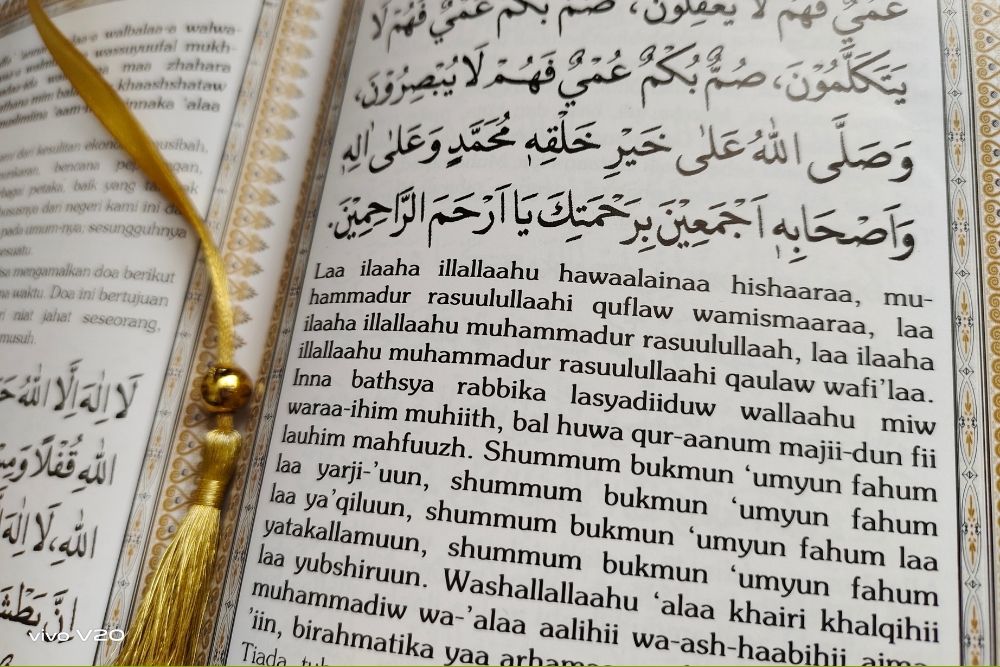 walbalaa-a walwa
wassuyuufal mukh-
maa zhahara
khaashshataw
innaka 'alaa
musibah,
bencana
petaka, baik yang
dari negeri kami ini
pada umum-nya, sesungguhnya
mengamalkan doa berikut
waktu. Doa ini bertujuan
niat jahat seseorang,
لَا اِلٰهَ اِلَّا اللهُ
اللهِ قُفْلًا
اللهِ، لَا اِلٰهَ
اِنَّ بَطْشَ
عُمْيٌ فَهُمْ لَا يَعْقِلُوْنَ، صُمٌّ بُكْمٌ عُمْيٌ فَهُمْ لَا
يَتَكَلَّمُوْنَ، صُمٌّ بُكْمٌ عُمْيٌ فَهُمْ لَا يُبْصِرُوْنَ،
وَصَلَّى اللهُ عَلٰى خَيْرِ خَلْقِهٖ مُحَمَّدٍ وَعَلٰى اٰلِهٖ
وَاَصْحَابِهٖ اَجْمَعِيْنَ بِرَحْمَتِكَ يَا اَرْحَمَ الرَّاحِمِيْنَ.
Laa ilaaha illallaahu hawaalainaa hishaaraa, mu-
hammadur rasuulullaahi quflaw wamismaaraa, laa
ilaaha illallaahu muhammadur rasuulullaah, laa ilaaha
illallaahu muhammadur rasuulullaahi qaulaw wafi'laa.
Inna bathsya rabbika lasyadiiduw wallaahu miw
waraa-ihim muhiith, bal huwa qur-aanum majii-dun fii
lauhim mahfuuzh. Shummum bukmun 'umyun fahum
laa yarji-'uun, shummum bukmun 'umyun fahum
laa ya'qiluun, shummum bukmun 'umyun fahum laa
yatakallamuun, shummum bukmun 'umyun fahum
laa yubshiruun. Washallallaahu 'alaa khairi khalqihii
muhammadiw wa-'alaa aalihii wa-ash-haabihii ajma
'iin, birahmatika yaa
Tiada
vivo V20